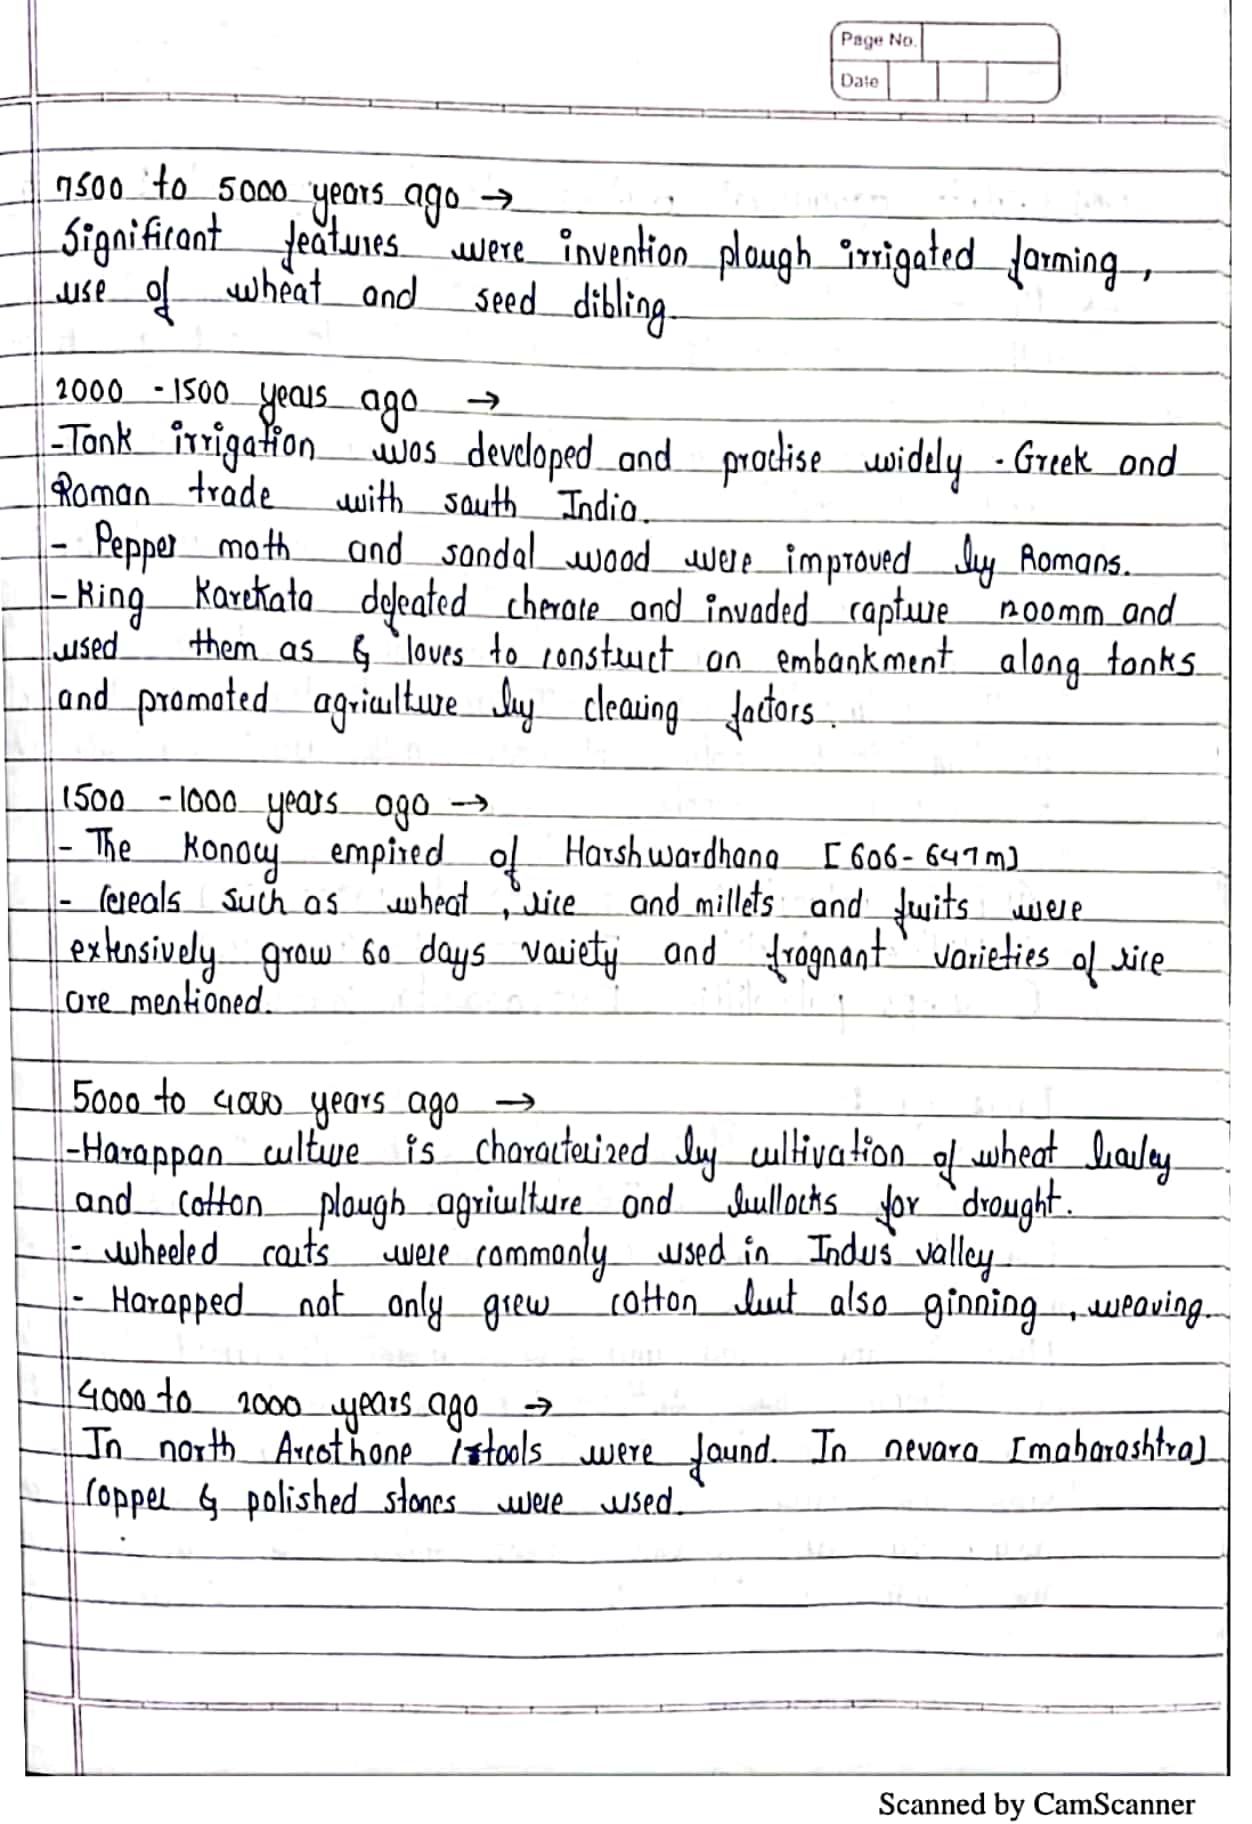 Page No.
Date
7500 to 5000 years ago →
Significant features were invention plough irrigated farming,
use of wheat and seed dibling.
2000 - 1500 years ago →
- Tank irrigation was developed and practise widely . Greek and
Roman trade with south India.
- Pepper moth and sandal wood were improved by Romans.
- King Karekata defeated cherate and invaded capture 12000mm and
used them as & loves to construct an embankment along tanks
and promoted agriculture by clearing factors.
1500 - 1000 years ago →
- The Konocy empired of Harshwardhana [606-647m]
- Cereals such as wheat, rice and millets and fruits were
extensively grow 60 days variety and fragnant varieties of rice
are mentioned.
5000 to 4000 years ago →
- Harappan culture is characterized by cultivation of wheat barley
and cotton plough agriculture and bullocks for drought.
- wheeled carts were commonly used in Indus valley
- Harapped not only grew cotton but also ginning, weaving.
4000 to 2000 years ago →
In north Arcothone tools were found. In nevara [maharashtra]
Copper & polished stones were used.
Scanned by CamScanner